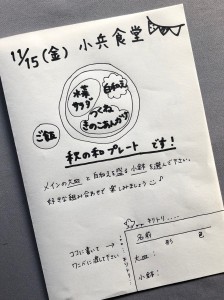 11/15(金) 小兵食堂
水菜
サラダ
白和え
つくね
きのこあんかけ
ご飯
秋の和プレート です!
メインの大皿 と 白和えを盛る 小鉢 を選んで下さい。
好きな組み合わせで 楽しみましょう
キリトリ
ココに書いて
ワニかに渡して下さい
名前
形 色
大皿:
小鉢: